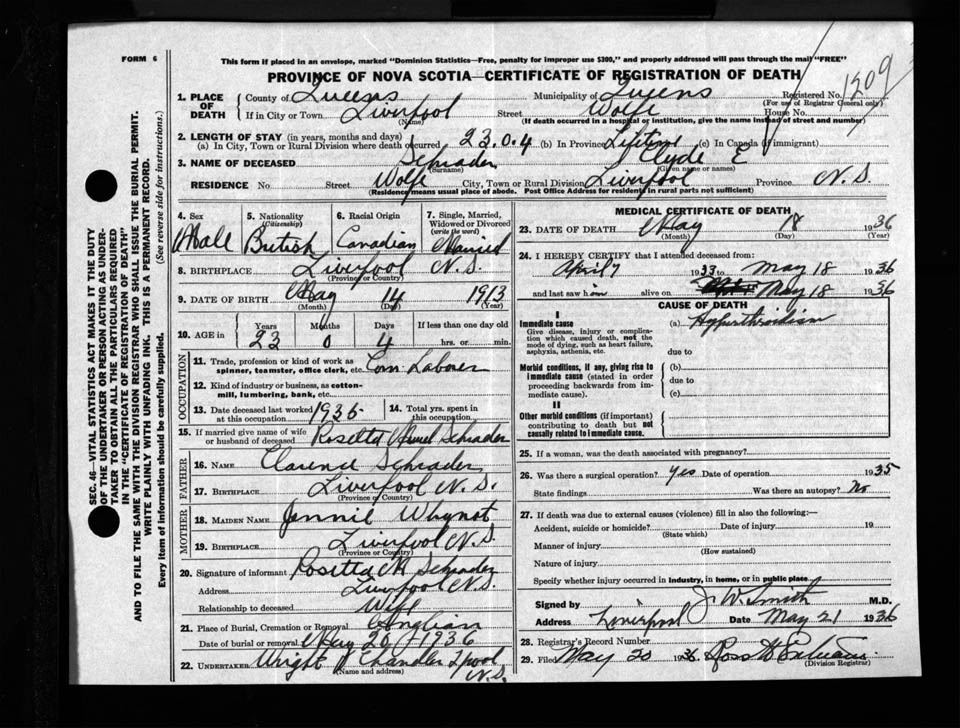 FORM 6
This form if placed in an envelope, marked "Dominion Statistics—Free, penalty for improper use $300," and properly addressed will pass through the mail "FREE"
PROVINCE OF NOVA SCOTIA—CERTIFICATE OF REGISTRATION OF DEATH
1309
1. PLACE OF DEATH
County of Queens Municipality of Queens Registered No.
(For use of Registrar General only)
If in City or Town Liverpool Street Wolfe House No.
(Name) (If death occurred in a hospital or institution, give the name instead of street and number)
2. LENGTH OF STAY (in years, months and days)
(a) In City, Town or Rural Division where death occurred 23.0.4 (b) In Province Lifetime (c) In Canada (if immigrant)
3. NAME OF DECEASED Schrader Clyde E
(Surname) (Given name or names)
RESIDENCE No Street Wolfe City, Town or Rural Division Liverpool Province N.S.
(Residence means usual place of abode. Post Office Address for residents in rural parts not sufficient)
4. Sex Male
5. Nationality (Citizenship) British
6. Racial Origin Canadian
7. Single, Married, Widowed or Divorced (write the word) Married
8. BIRTHPLACE Liverpool N.S.
(Province or Country)
9. DATE OF BIRTH May 14 1913
(Month) (Day) (Year)
10. AGE in Years Months Days If less than one day old
23 0 4 hrs. or min.
OCCUPATION
11. Trade, profession or kind of work as spinner, teamster, office clerk, etc. Com Laborer
12. Kind of industry or business, as cotton-mill, lumbering, bank, etc.
13. Date deceased last worked at this occupation 1935
14. Total yrs. spent in this occupation
15. If married give name of wife or husband of deceased Rosetta Schrader
FATHER
16. NAME Clarence Schrader
17. BIRTHPLACE Liverpool N.S.
(Province or Country)
MOTHER
18. MAIDEN NAME Jennie Whynot
19. BIRTHPLACE Liverpool N.S.
(Province or Country)
20. Signature of informant Rosetta M Schrader
Address Liverpool N.S.
Relationship to deceased Wife
21. Place of Burial, Cremation or Removal Anglican
Date of burial or removal May 20 1936
22. UNDERTAKER Wright Chandler L'pool N.S.
(Name and address)
MEDICAL CERTIFICATE OF DEATH
23. DATE OF DEATH May 18 1936
(Month) (Day) (Year)
24. I HEREBY CERTIFY that I attended deceased from:
April 7 1933 to May 18 1936
and last saw him alive on May 18 1936
CAUSE OF DEATH
I
Immediate cause (a) Hyperthroidism
Give disease, injury or complication which caused death, not the mode of dying, such as heart failure, asphyxia, asthenia, etc.
due to
Morbid conditions, if any, giving rise to immediate cause (stated in order proceeding backwards from immediate cause).
(b)
due to
(c)
II
Other morbid conditions (if important) contributing to death but not causally related to immediate cause.
25. If a woman, was the death associated with pregnancy?
26. Was there a surgical operation? yes Date of operation 1935
State findings Was there an autopsy? No
27. If death was due to external causes (violence) fill in also the following:—
Accident, suicide or homicide? Date of injury 19
(State which)
Manner of injury
(How sustained)
Nature of injury
Specify whether injury occurred in industry, in home, or in public place
Signed by J W Smith M.D.
Address Liverpool Date May 21 1936
28. Registrar's Record Number
29. Filed May 20 1936 Ross
(Division Registrar)
SEC. 46—VITAL STATISTICS ACT MAKES IT THE DUTY
OF THE UNDERTAKER OR PERSON ACTING AS UNDER-
TAKER TO OBTAIN ALL THE PARTICULARS REQUIRED
IN THE "CERTIFICATE OF REGISTRATION OF DEATH"
AND TO FILE THE SAME WITH THE DIVISION REGISTRAR WHO SHALL ISSUE THE BURIAL PERMIT.
WRITE PLAINLY WITH UNFADING INK. THIS IS A PERMANENT RECORD.
Every item of information should be carefully supplied. (See reverse side for instructions.)